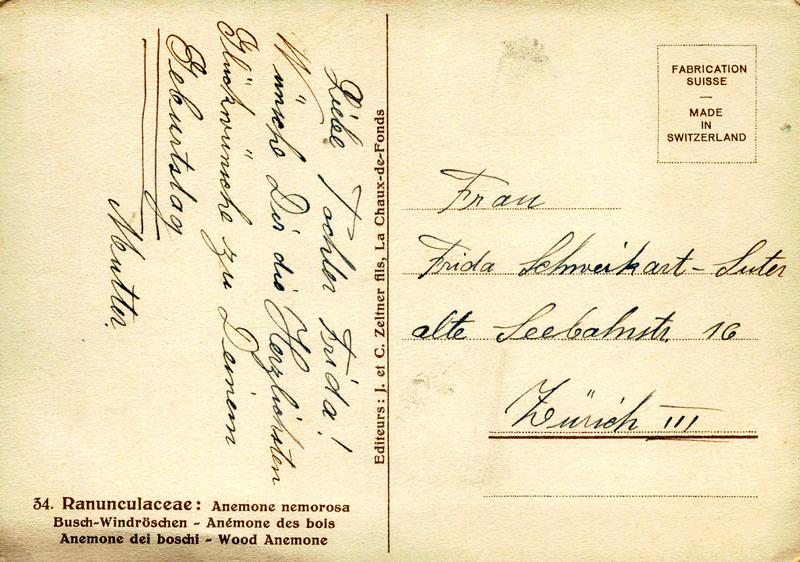 Liebe Tochter Frida!
Wünsche Dir die Herzlichsten
Glückwünsche zu Deinem
Geburtstag
Mutter.
34. Ranunculaceae: Anemone nemorosa
Busch-Windröschen - Anémone des bois
Anemone dei boschi - Wood Anemone
Editeurs: J. et C. Zeltner fils, La Chaux-de-Fonds
FABRICATION
SUISSE
—
MADE
IN
SWITZERLAND
Frau
Frida Schweikart-Suter
alte Seebahnstr. 16
Zürich III